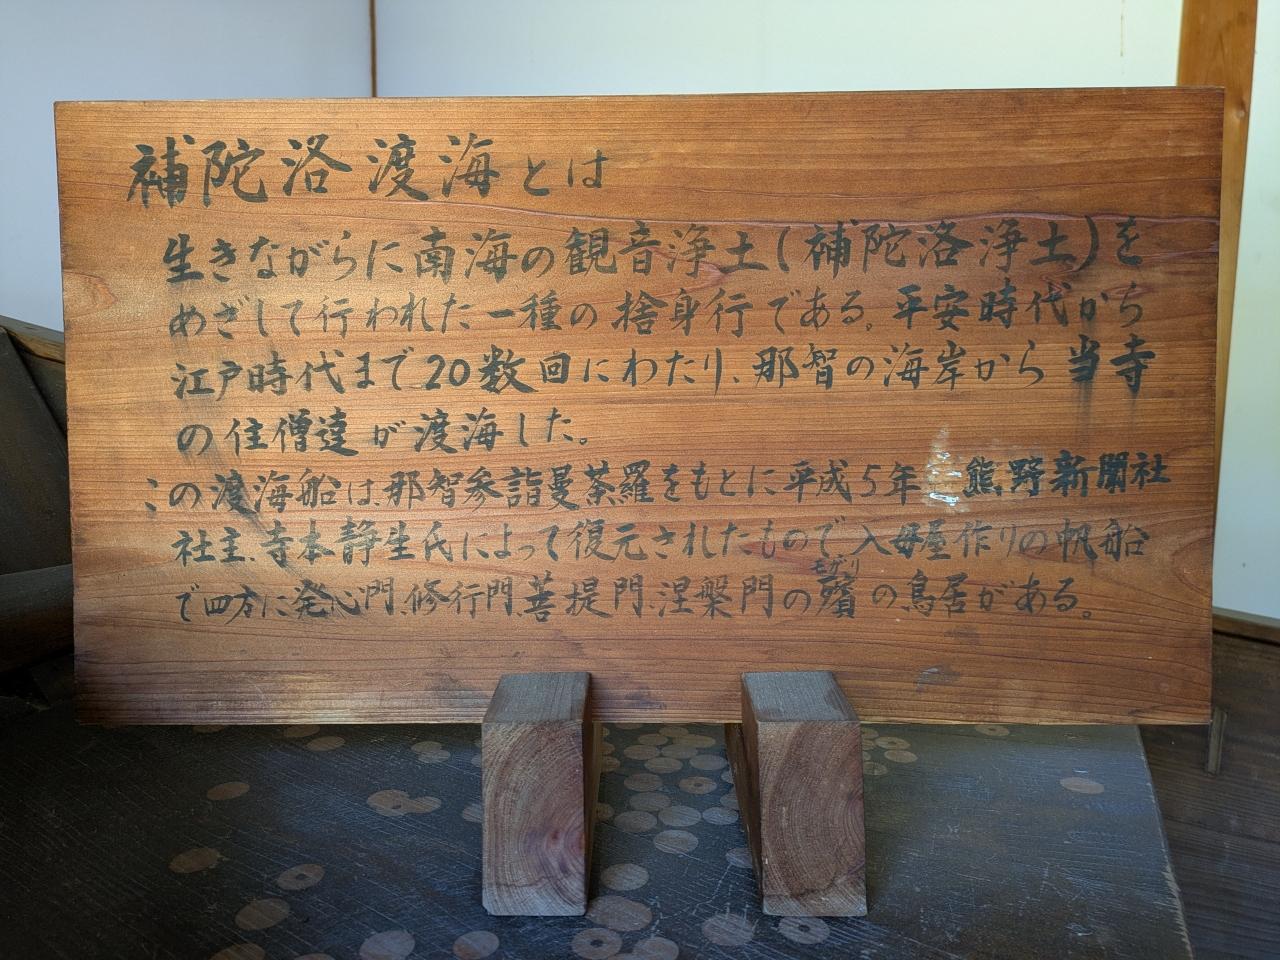 補陀洛渡海とは
生きながらに南海の観音浄土(補陀洛浄土)を
めざして行われた一種の捨身行である。平安時代から
江戸時代まで20数回にわたり、那智の海岸から当寺
の住僧達が渡海した。
この渡海船は、那智参詣曼荼羅をもとに平成5年 熊野新聞社
社主、寺本静生氏によって復元されたもので、入母屋作りの帆船
で四方に発心門、修行門、菩提門、涅槃門の殯の鳥居がある。
モガリ